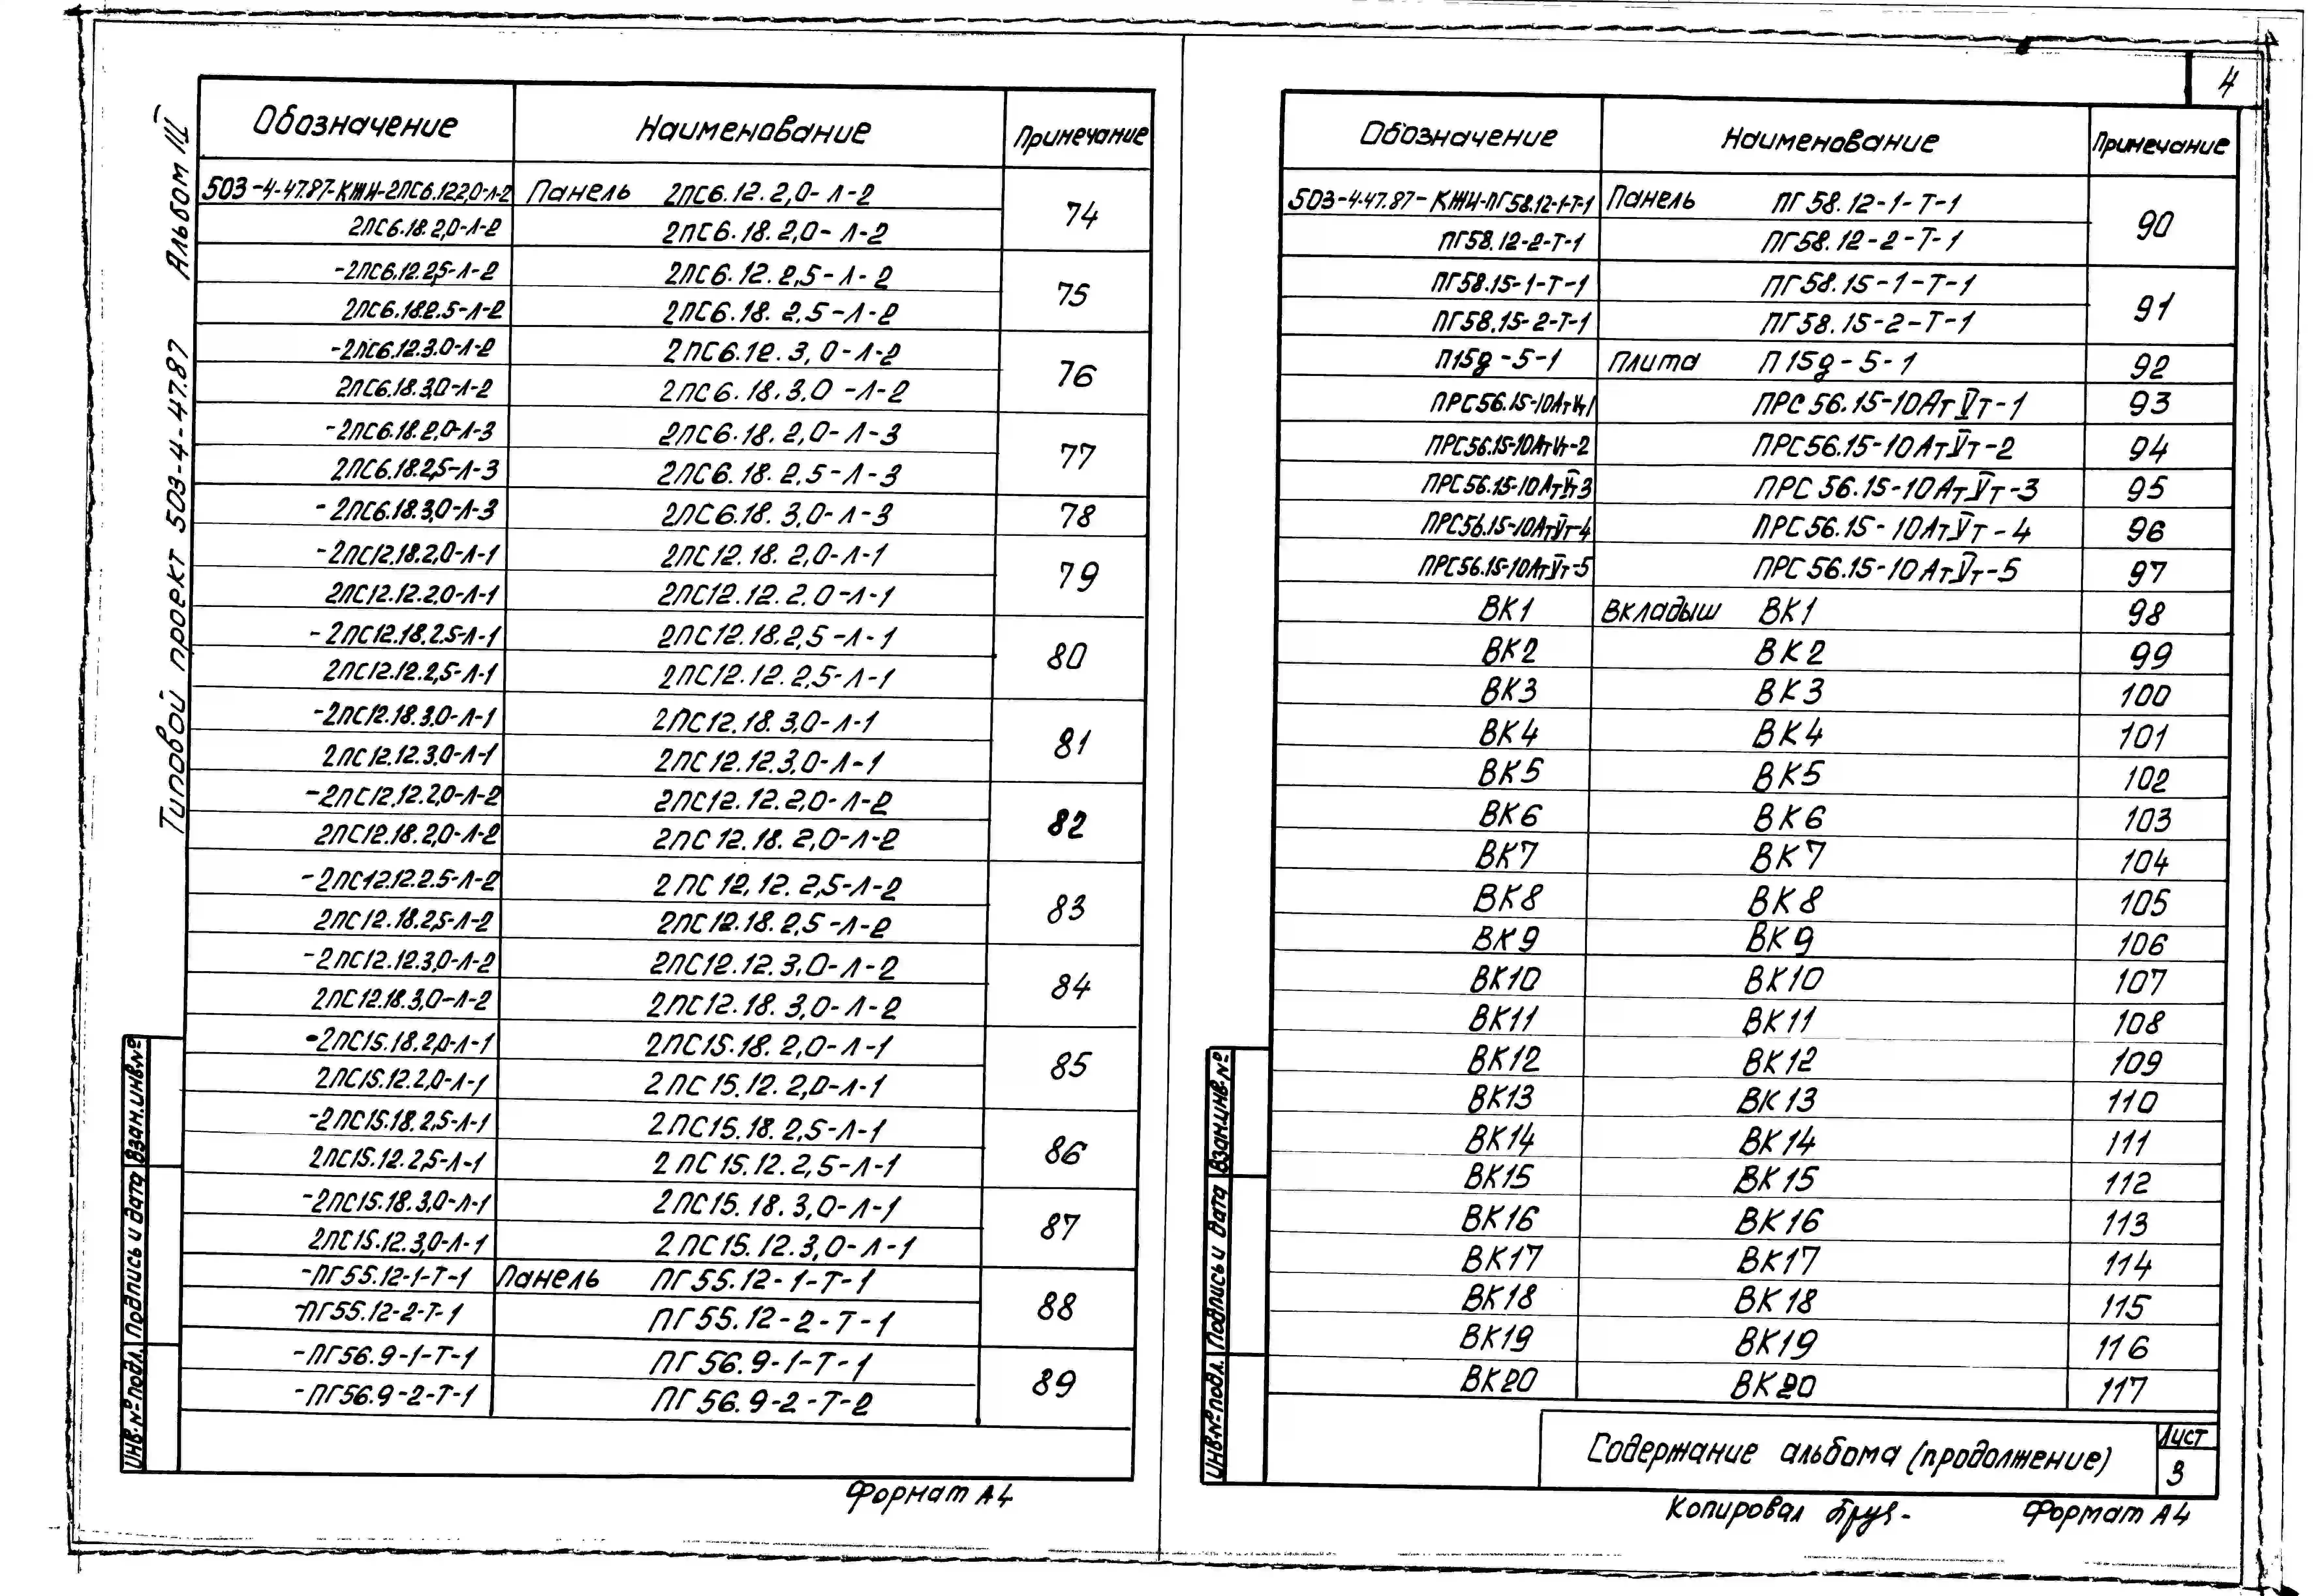 4
Типовой проект 503-4-47.87 Альбом III
Обозначение Наименование Примечание
503-4-47.87-КЖИ-2ПС6.12.2,0-Л-2 Панель 2ПС6.12.2,0-Л-2 74
2ПС6.18.2,0-Л-2 2ПС6.18.2,0-Л-2
-2ПС6.12.2,5-Л-2 2ПС6.12.2,5-Л-2 75
2ПС6.18.2.5-Л-2 2ПС6.18.2.5-Л-2
-2ПС6.12.3.0-Л-2 2ПС6.12.3,0-Л-2 76
2ПС6.18.3,0-Л-2 2ПС6.18.3.0-Л-2
-2ПС6.18.2,0-Л-3 2ПС6.18.2,0-Л-3 77
2ПС6.18.2,5-Л-3 2ПС6.18.2,5-Л-3
-2ПС6.18.3,0-Л-3 2ПС6.18.3,0-Л-3 78
-2ПС12.18.2,0-Л-1 2ПС12.18.2,0-Л-1 79
2ПС12.12.2,0-Л-1 2ПС12.12.2.0-Л-1
-2ПС12.18.2.5-Л-1 2ПС12.18.2,5-Л-1 80
2ПС12.12.2,5-Л-1 2ПС12.12.2,5-Л-1
-2ПС12.18.3.0-Л-1 2ПС12.18.3,0-Л-1 81
2ПС12.12.3,0-Л-1 2ПС12.12.3,0-Л-1
-2ПС12.12.2,0-Л-2 2ПС12.12.2,0-Л-2 82
2ПС12.18.2,0-Л-2 2ПС12.18.2,0-Л-2
-2ПС12.12.2.5-Л-2 2ПС12.12.2,5-Л-2 83
2ПС12.18.2,5-Л-2 2ПС12.18.2,5-Л-2
-2ПС12.12.3,0-Л-2 2ПС12.12.3,0-Л-2 84
2ПС12.18.3,0-Л-2 2ПС12.18.3,0-Л-2
-2ПС15.18.2,0-Л-1 2ПС15.18.2,0-Л-1 85
2ПС15.12.2,0-Л-1 2ПС15.12.2,0-Л-1
-2ПС15.18.2,5-Л-1 2ПС15.18.2,5-Л-1 86
2ПС15.12.2,5-Л-1 2ПС15.12.2,5-Л-1
-2ПС15.18.3,0-Л-1 2ПС15.18.3,0-Л-1 87
2ПС15.12.3,0-Л-1 2ПС15.12.3,0-Л-1
-ПГ55.12-1-Т-1 Панель ПГ55.12-1-Т-1 88
-ПГ55.12-2-Т-1 ПГ55.12-2-Т-1
-ПГ56.9-1-Т-1 ПГ56.9-1-Т-1 89
-ПГ56.9-2-Т-1 ПГ56.9-2-Т-2
Инв.№ подл. Подпись и дата Взам.инв.№
Формат А4
Обозначение Наименование Примечание
503-4-47.87-КЖИ-ПГ58.12-1-Т-1 Панель ПГ58.12-1-Т-1 90
ПГ58.12-2-Т-1 ПГ58.12-2-Т-1
ПГ58.15-1-Т-1 ПГ58.15-1-Т-1 91
ПГ58.15-2-Т-1 ПГ58.15-2-Т-1
П15д-5-1 Плита П15д-5-1 92
ПРС56.15-10АтVт1 ПРС56.15-10АтVт-1 93
ПРС56.15-10АтVт-2 ПРС56.15-10АтVт-2 94
ПРС56.15-10АтVт3 ПРС56.15-10АтVт-3 95
ПРС56.15-10АтVт-4 ПРС56.15-10АтVт-4 96
ПРС56.15-10АтVт-5 ПРС56.15-10АтVт-5 97
ВК1 Вкладыш ВК1 98
ВК2 ВК2 99
ВК3 ВК3 100
ВК4 ВК4 101
ВК5 ВК5 102
ВК6 ВК6 103
ВК7 ВК7 104
ВК8 ВК8 105
ВК9 ВК9 106
ВК10 ВК10 107
ВК11 ВК11 108
ВК12 ВК12 109
ВК13 ВК13 110
ВК14 ВК14 111
ВК15 ВК15 112
ВК16 ВК16 113
ВК17 ВК17 114
ВК18 ВК18 115
ВК19 ВК19 116
ВК20 ВК20 117
Инв.№ подл. Подпись и дата Взам.инв.№
Содержание альбома (продолжение)
Лист
3
Копировал
Формат А4